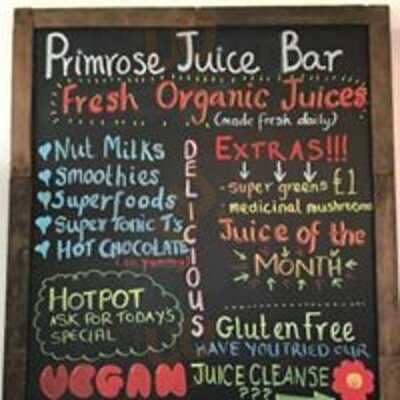 Primrose Juice Bar
Fresh Organic Juices
(made fresh daily)
Nut Milks
Smoothies
Superfoods
Super Tonic T's
HOT CHOCOLATE
DELICIOUS
EXTRAS!!!
- super greens £1
- medicinal mushrooms
Juice of the
MONTH
HOTPOT
ASK FOR TODAYS
SPECIAL
Gluten Free
HAVE YOU TRIED OUR
VEGAN JUICE CLEANSE
???